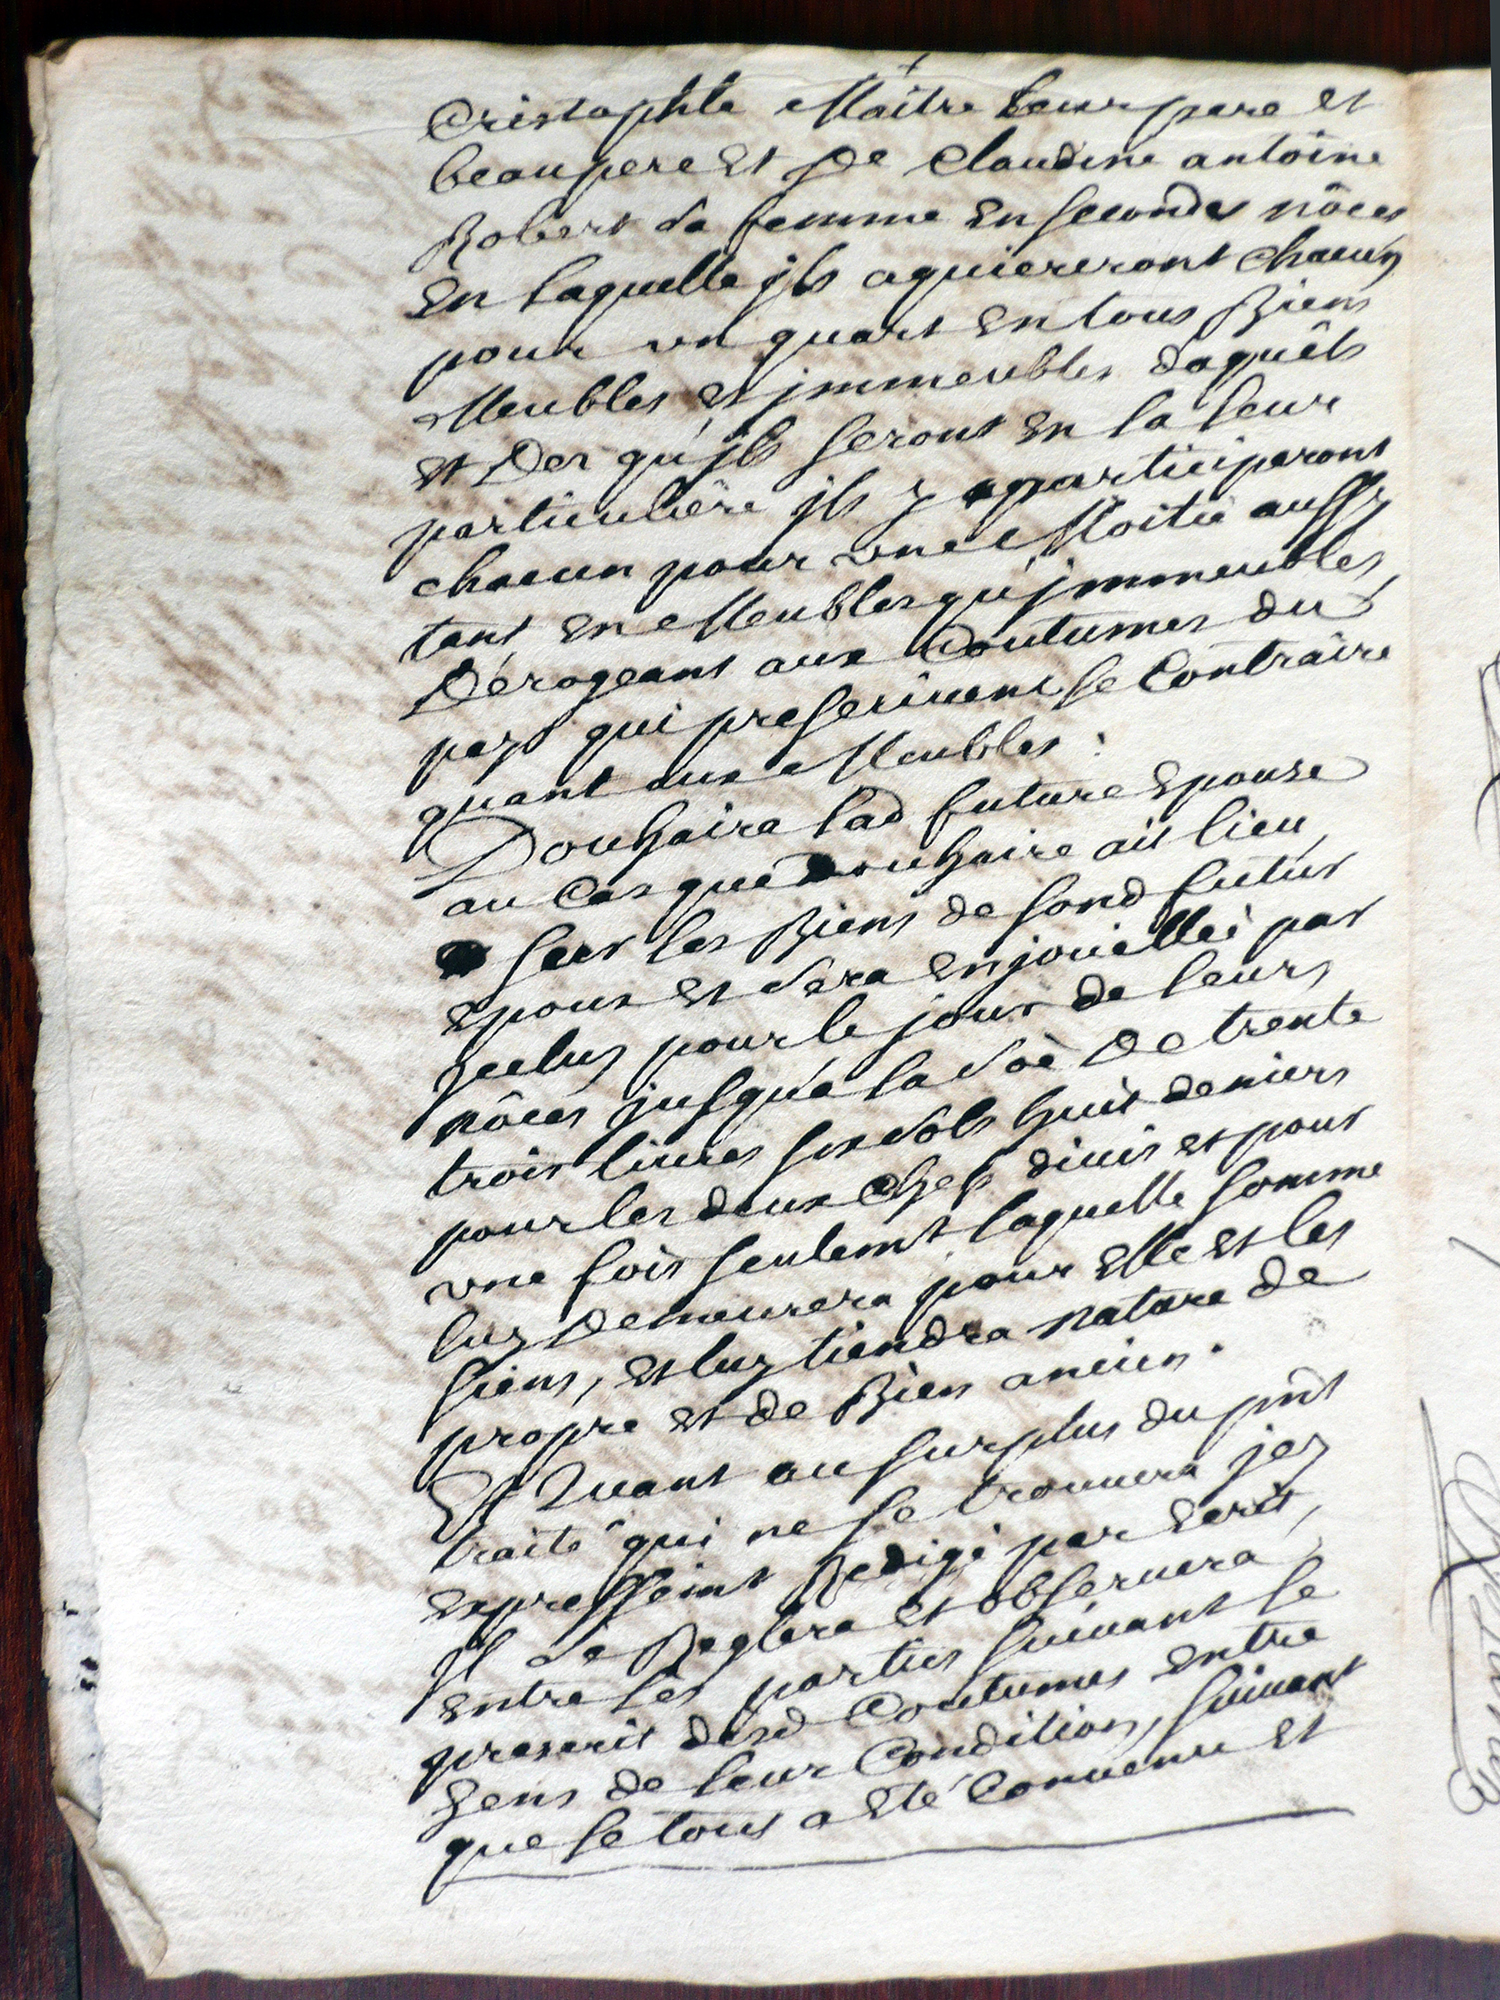 Cristophle Maitre leur pere et
beaupere et De Claudine antoine
Robert sa femme en secondes nôces
En laquelle jls aquiereront chacun
pour un quart en tous Biens
Meubles et jmmeubles daquêts
et Des qu'jls seront en la leur
particulière jls y participeront
chacun pour une Moitié aussy
tant en Meubles qu'jmmeubles,
Dérogeant aux Coutumes du
pays qui prescrivent le Contraire
quant aux Meubles :
Douhaire lad future Epouse
au Cas que Douhaire ait lieu,
sur les Biens de fond futur
Epoux et sera enjouellée par
jceluy pour le jour de leurs
nôces jusqu'a la soē De trente
trois livres six sols huit deniers
pour les deux Chefs divis et pour
une fois seulemt laquelle somme
luy Demeurera pour Elle et les
siens, et luy tiendra nature de
propre et de Bien ancien.
Et Quant au surplus du pn̄t
traité qui ne se trouvera jcy
expressémt Redigé par Ecrit,
jl se Reglera et observera
entre les parties suivant le
prescrit desd Coutumes entre
gens de leur Condition, suivant
que le tout a Eté Convenu et